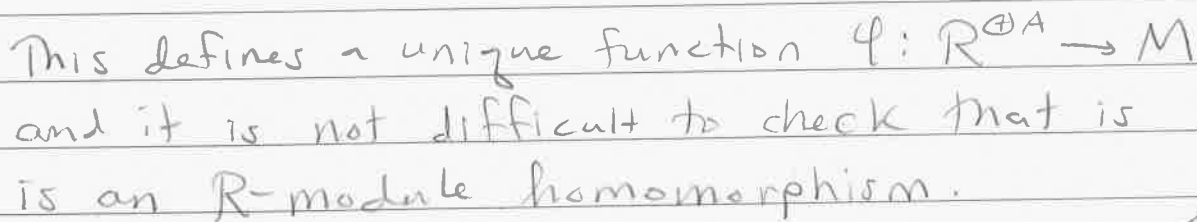 This defines a unique function φ: R^{⊕A} → M
and it is not difficult to check that is
is an R-module homomorphism.